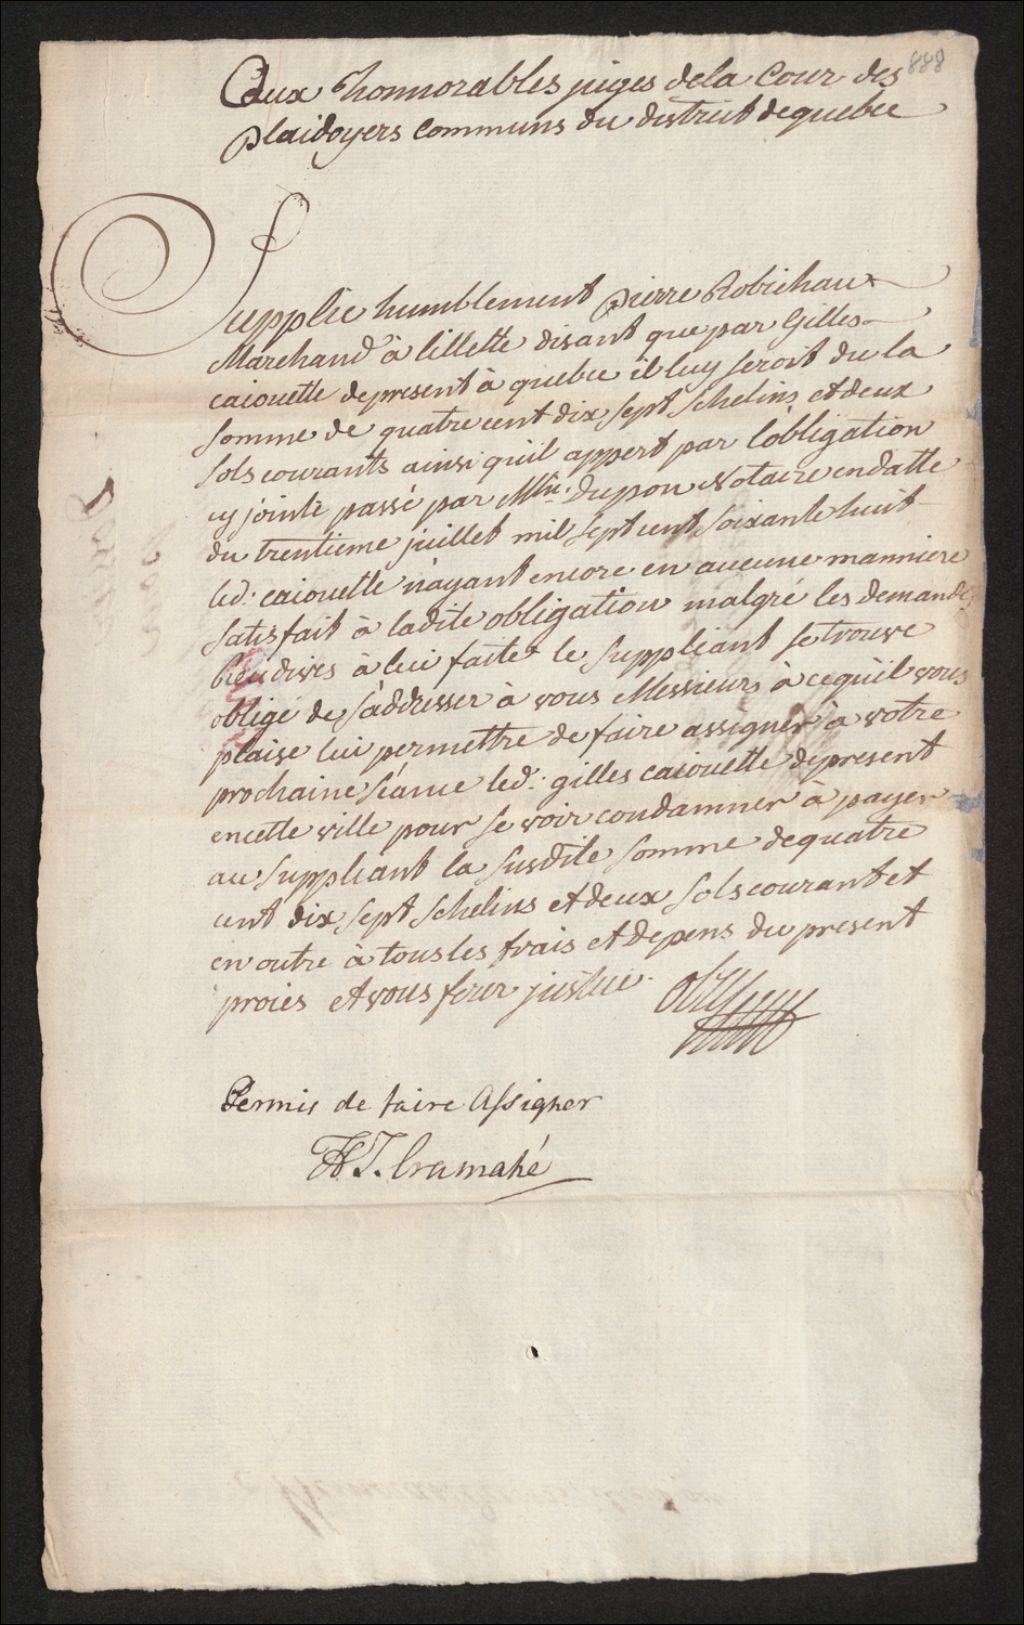 888
Aux honnorables juges de la Cour des
plaidoyers communs du district de quebec
Supplie humblement Pierre Robichau
Marchand à lillette disant que par Gilles
caiouette de present à quebec il luy seroit du la
somme de quatre cent dix sept schelins et deux
sols courants ainsi quil appert par l'obligation
cy jointe passé par Mtre. Dupon Notaire en datte
du trentieme juillet mil sept cent soixante huit
led. caiouette n'ayant encore en aucune manniere
satisfait à ladite obligation malgré les demandes
diverses à lui faite le suppliant se trouve
obligé de s'addresser à vous Messieurs à cequil vous
plaise lui permettre de faire assigner à votre
prochaine séance led. gilles caiouette de present
en cette ville pour se voir condamner à payer
au suppliant la susdite somme de quatre
cent dix sept schelins et deux sols courant et
en outre à tous les frais et depens du present
procés et vous ferez justice.
Permis de faire Assigner
H T. Cramahé